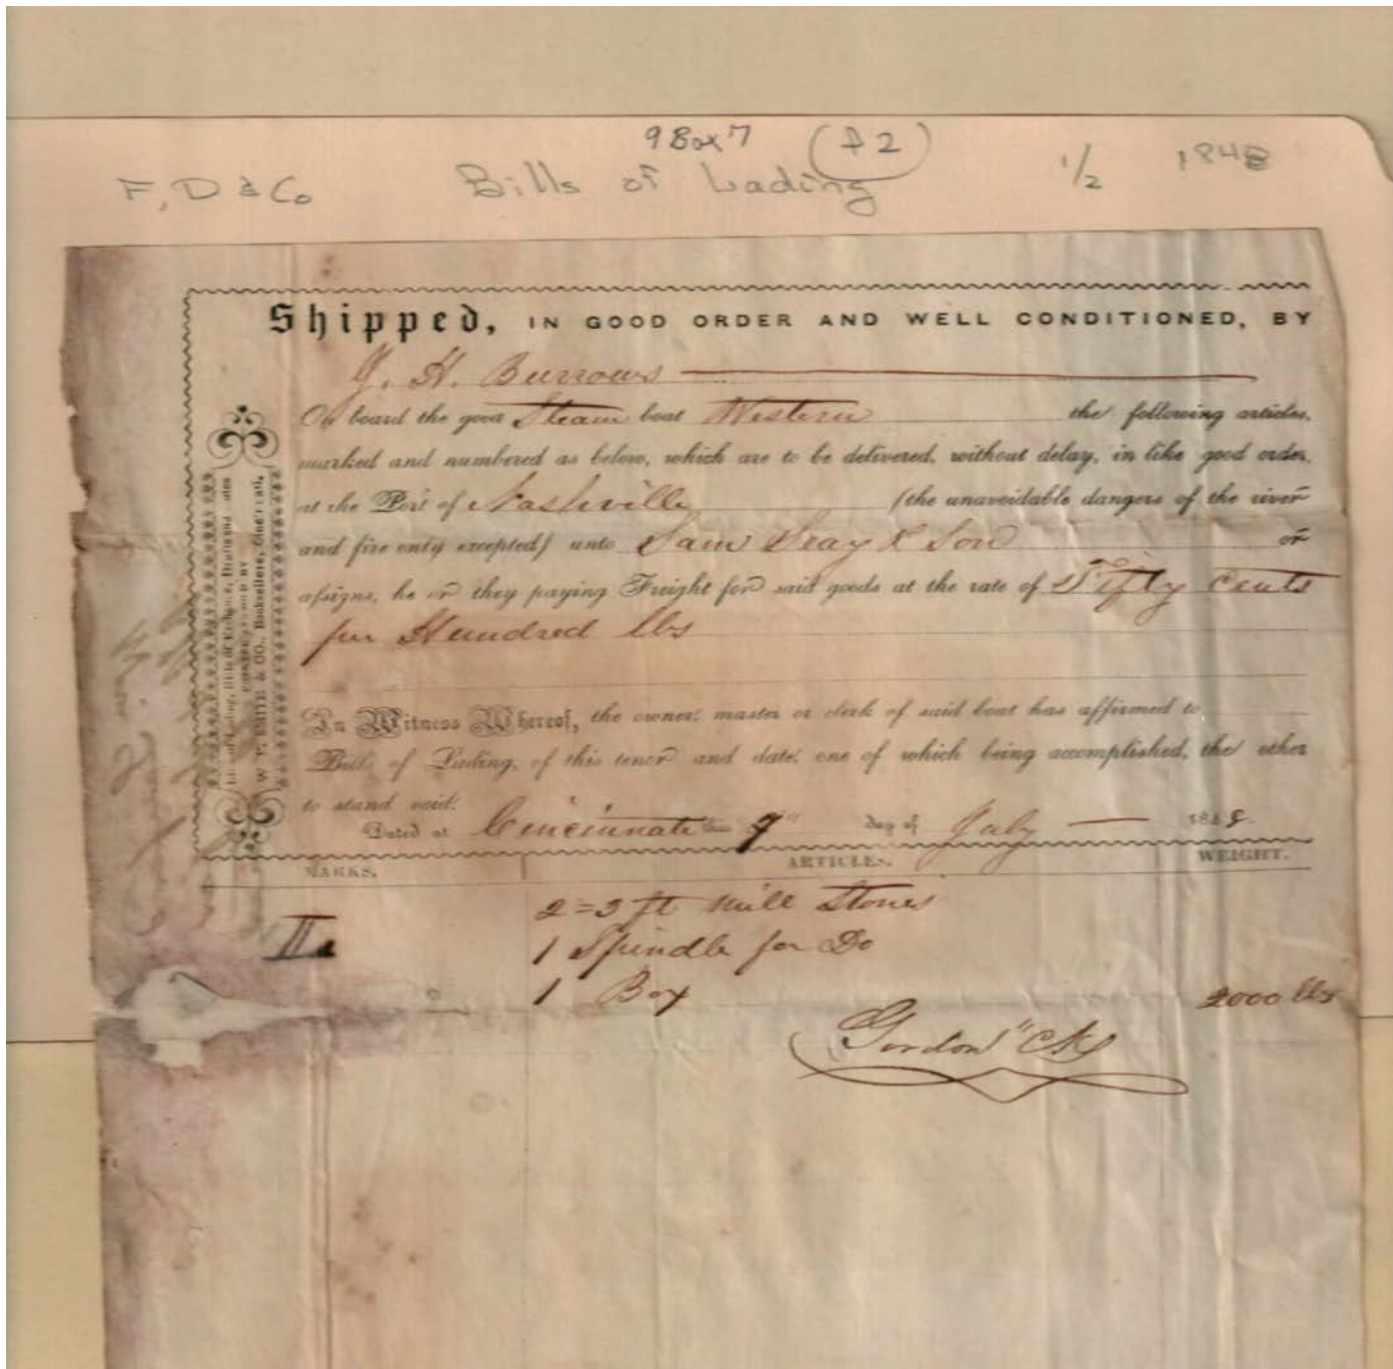 9 Box 7 (A2)
F, D & Co Bills of Lading 1/2 1848
Shipped, IN GOOD ORDER AND WELL CONDITIONED, BY
J. H. Burrows
On board the good Steam boat Western the following articles,
marked and numbered as below, which are to be delivered, without delay, in like good order,
at the Port of Nashville (the unavoidable dangers of the river
and fire only excepted) unto Sam Seay & Son or
assigns, he or they paying Freight for said goods at the rate of Fifty Cents
per Hundred lbs
In Witness Whereof, the owner, master or clerk of said boat has affirmed to
Bills of Lading, of this tenor and date, one of which being accomplished, the other
to stand void.
Dated at Cincinnati this day of July 1848.
MARKS. ARTICLES. WEIGHT.
2=3 ft Mill Stones
1 Spindle for Do
1 Box 2000 lbs
Gordon Clk
Bills of Lading, Bills of Exchange, Drafts and
W. T. SMITH & CO., Booksellers, Cincinnati.